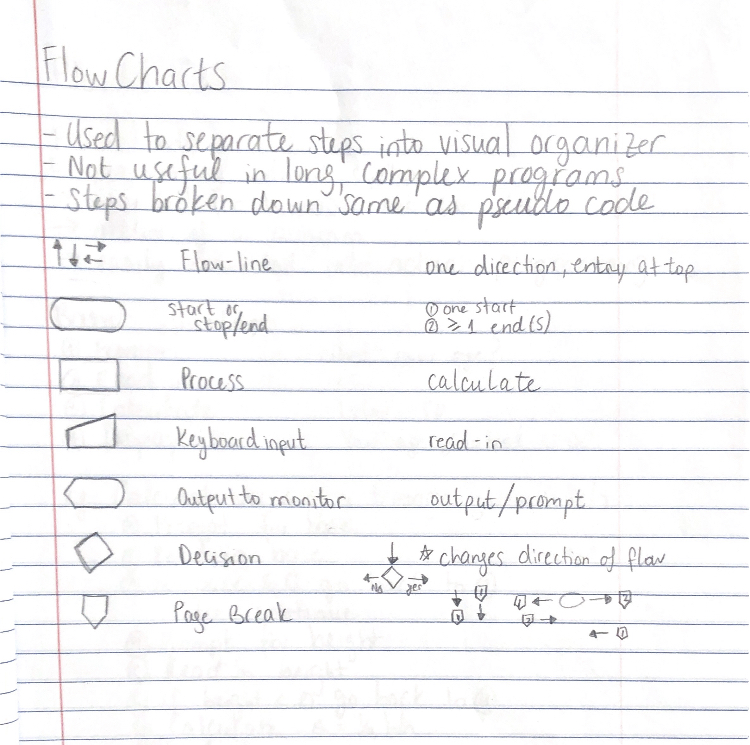 Flow Charts
- Used to separate steps into visual organizer
- Not useful in long, complex programs
- Steps broken down same as pseudo code
Flow-line one direction, entry at top
start or
stop/end
① one start
② ≥ 1 end(s)
Process calculate
Keyboard input read-in
Output to monitor output/prompt
Decision ☆ changes direction of flow
No yes
Page Break